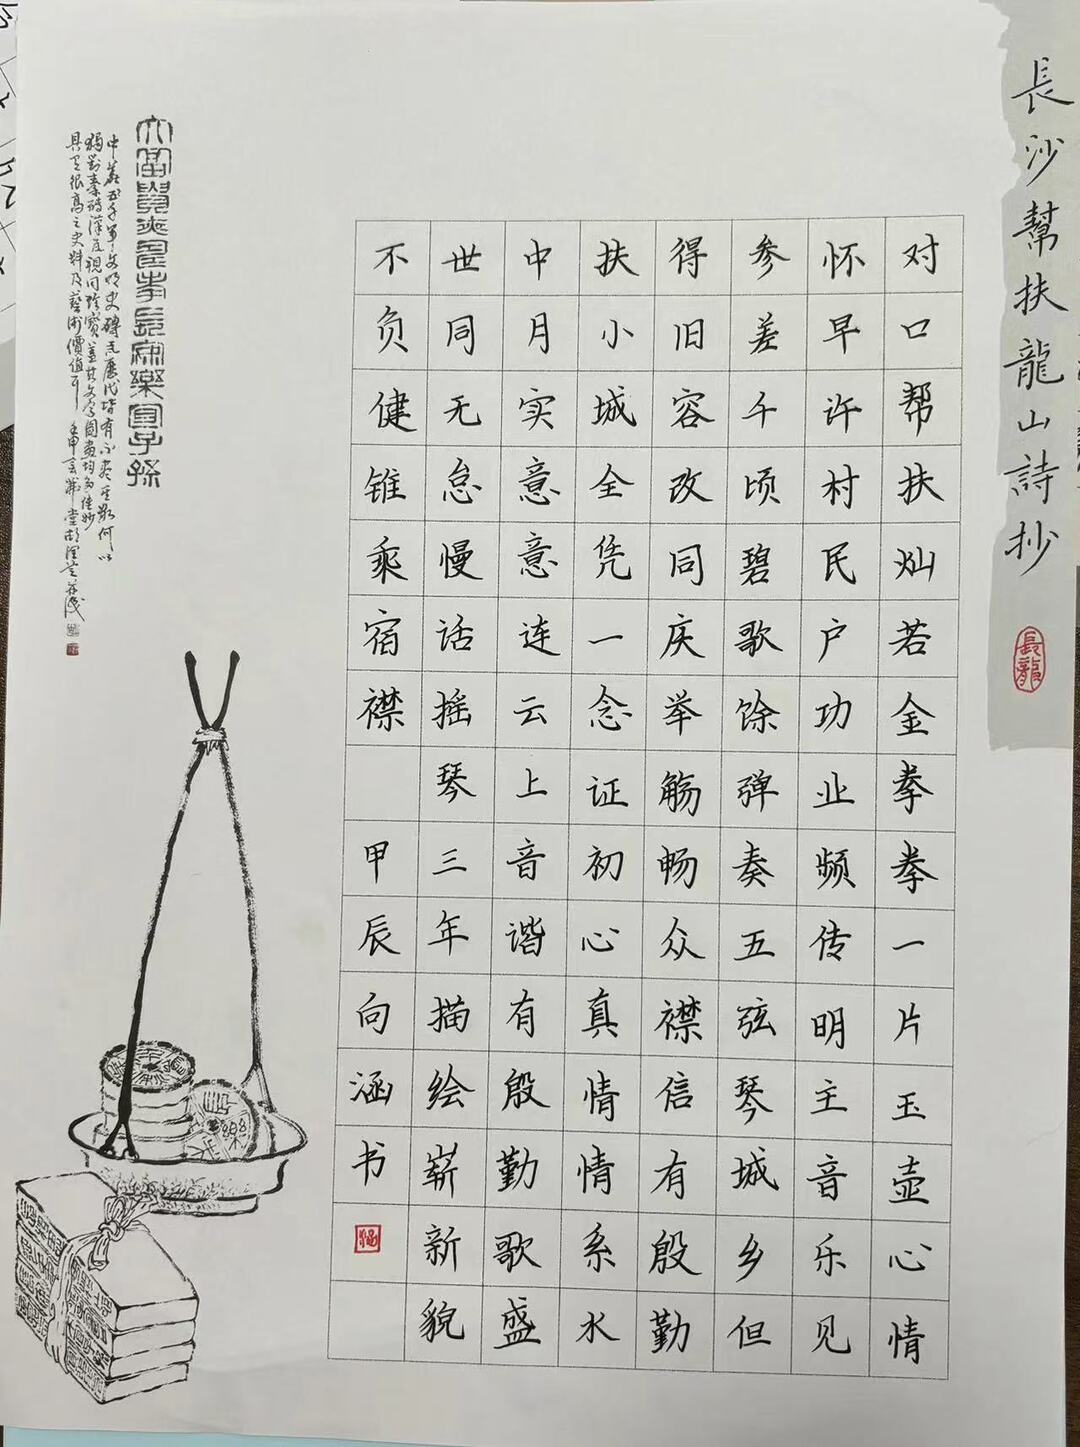 長沙幫扶龍山詩抄
長龍
对口帮扶灿若金拳拳一片玉壶心情
怀早许村民户功业频传明主音乐见
参差千顷碧歌馀弹奏五弦琴城乡但
得旧容改同庆举觞畅众襟信有殷勤
扶小城全凭一念证初心真情情系水
中月实意意连云上音谐有殷勤歌盛
世同无怠慢话摇琴三年描绘崭新貌
不负健锥乘宿襟 甲辰向涵书
涵
大富貴
長
樂宜子孫